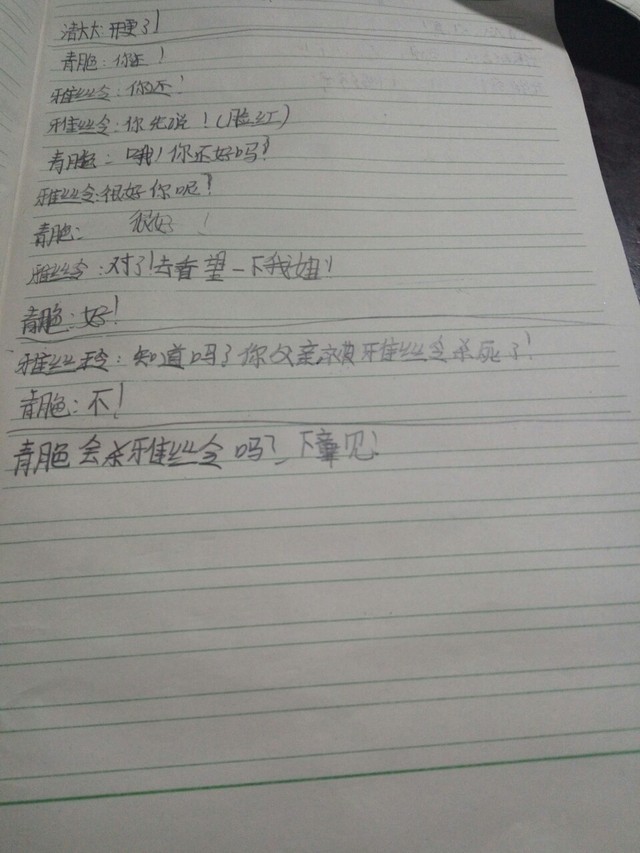 清大大:开更了!
青脃:你还!
雅丝令:你还!
雅丝令:你先说!(脸红)
青脃:哦!你还好吗?
雅丝令:很好你呢?
青脃: 很好!
雅丝令:对了!去看望一下我姐!
青脃:好!
雅丝玲:知道吗?你父亲被雅丝令杀死了!
青脃:不!
青脃会杀雅丝令吗?下章见!